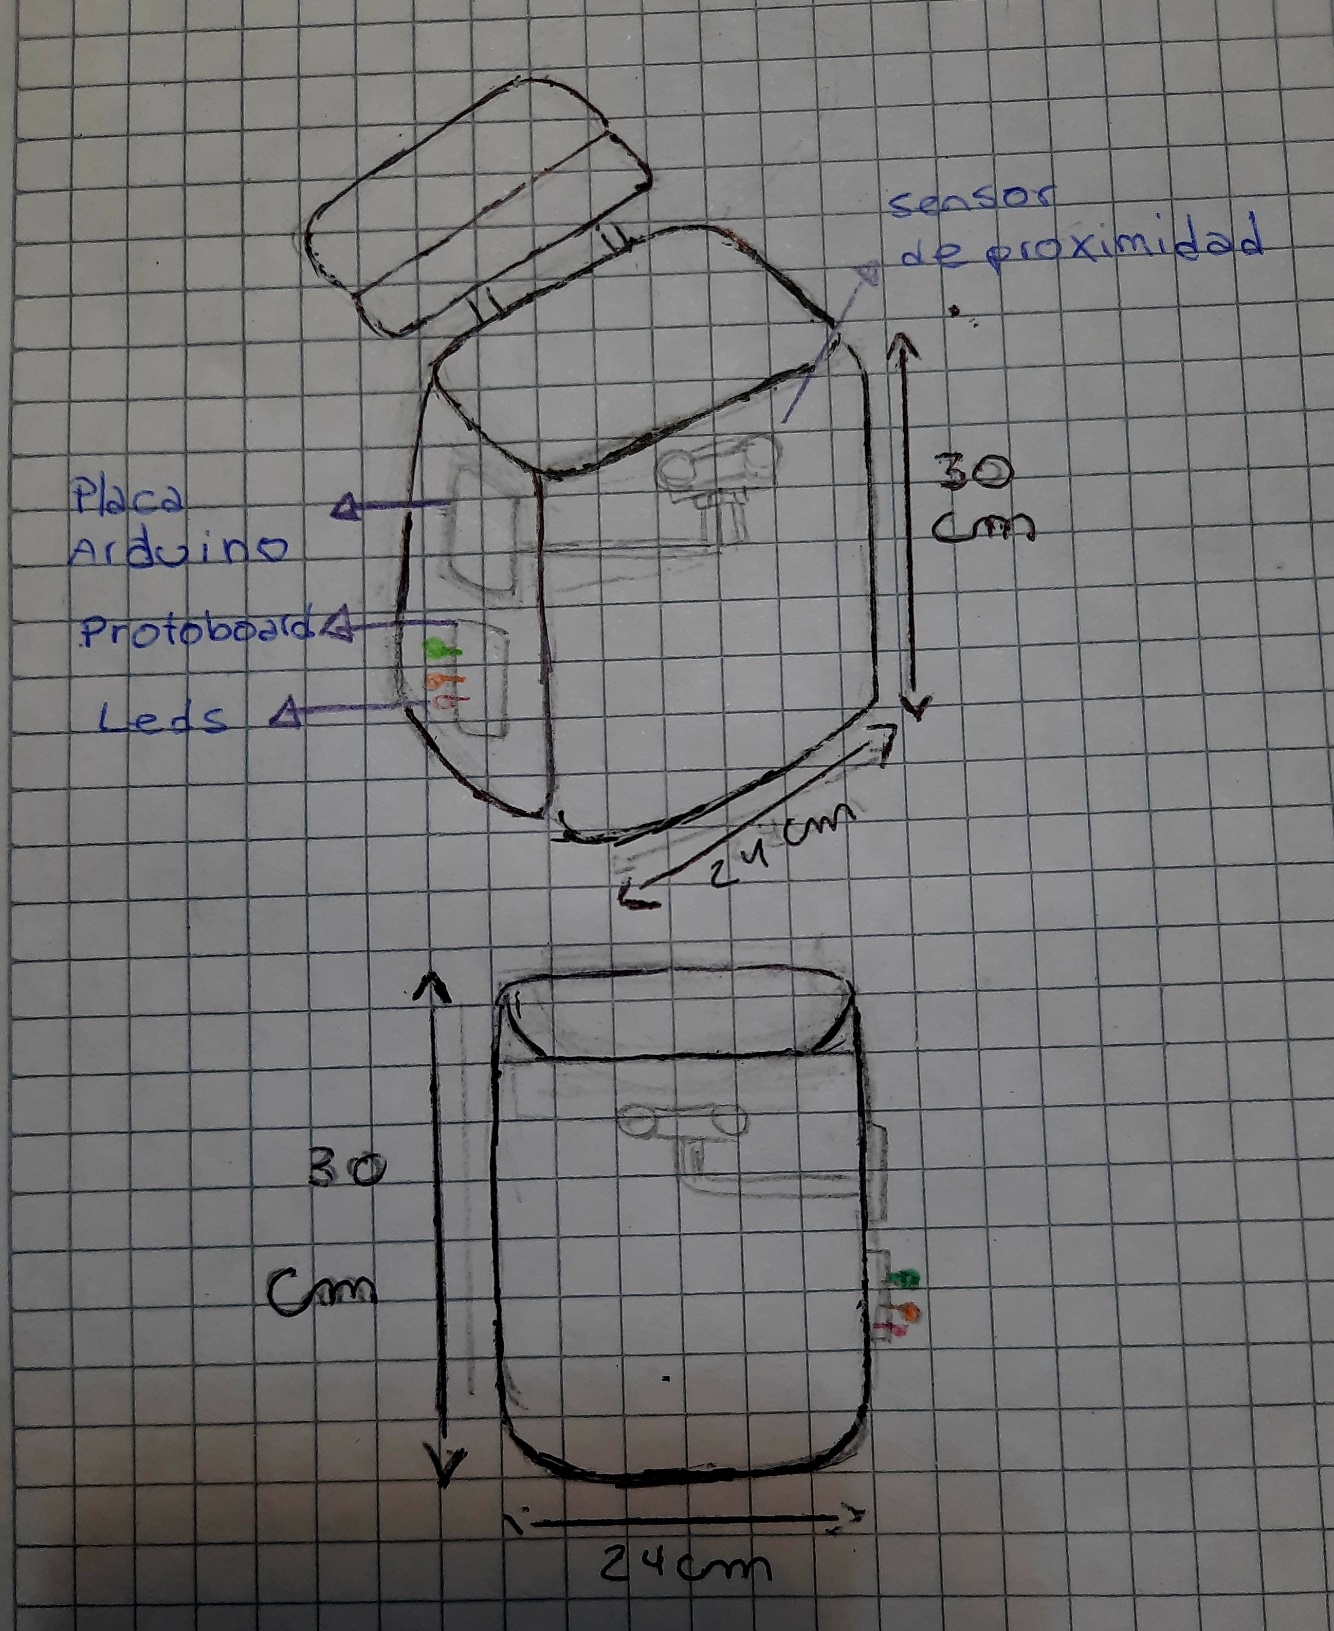 sensor
de proximidad
30
cm
Placa
Arduino
Protoboard
Leds
24 cm
30
cm
24cm